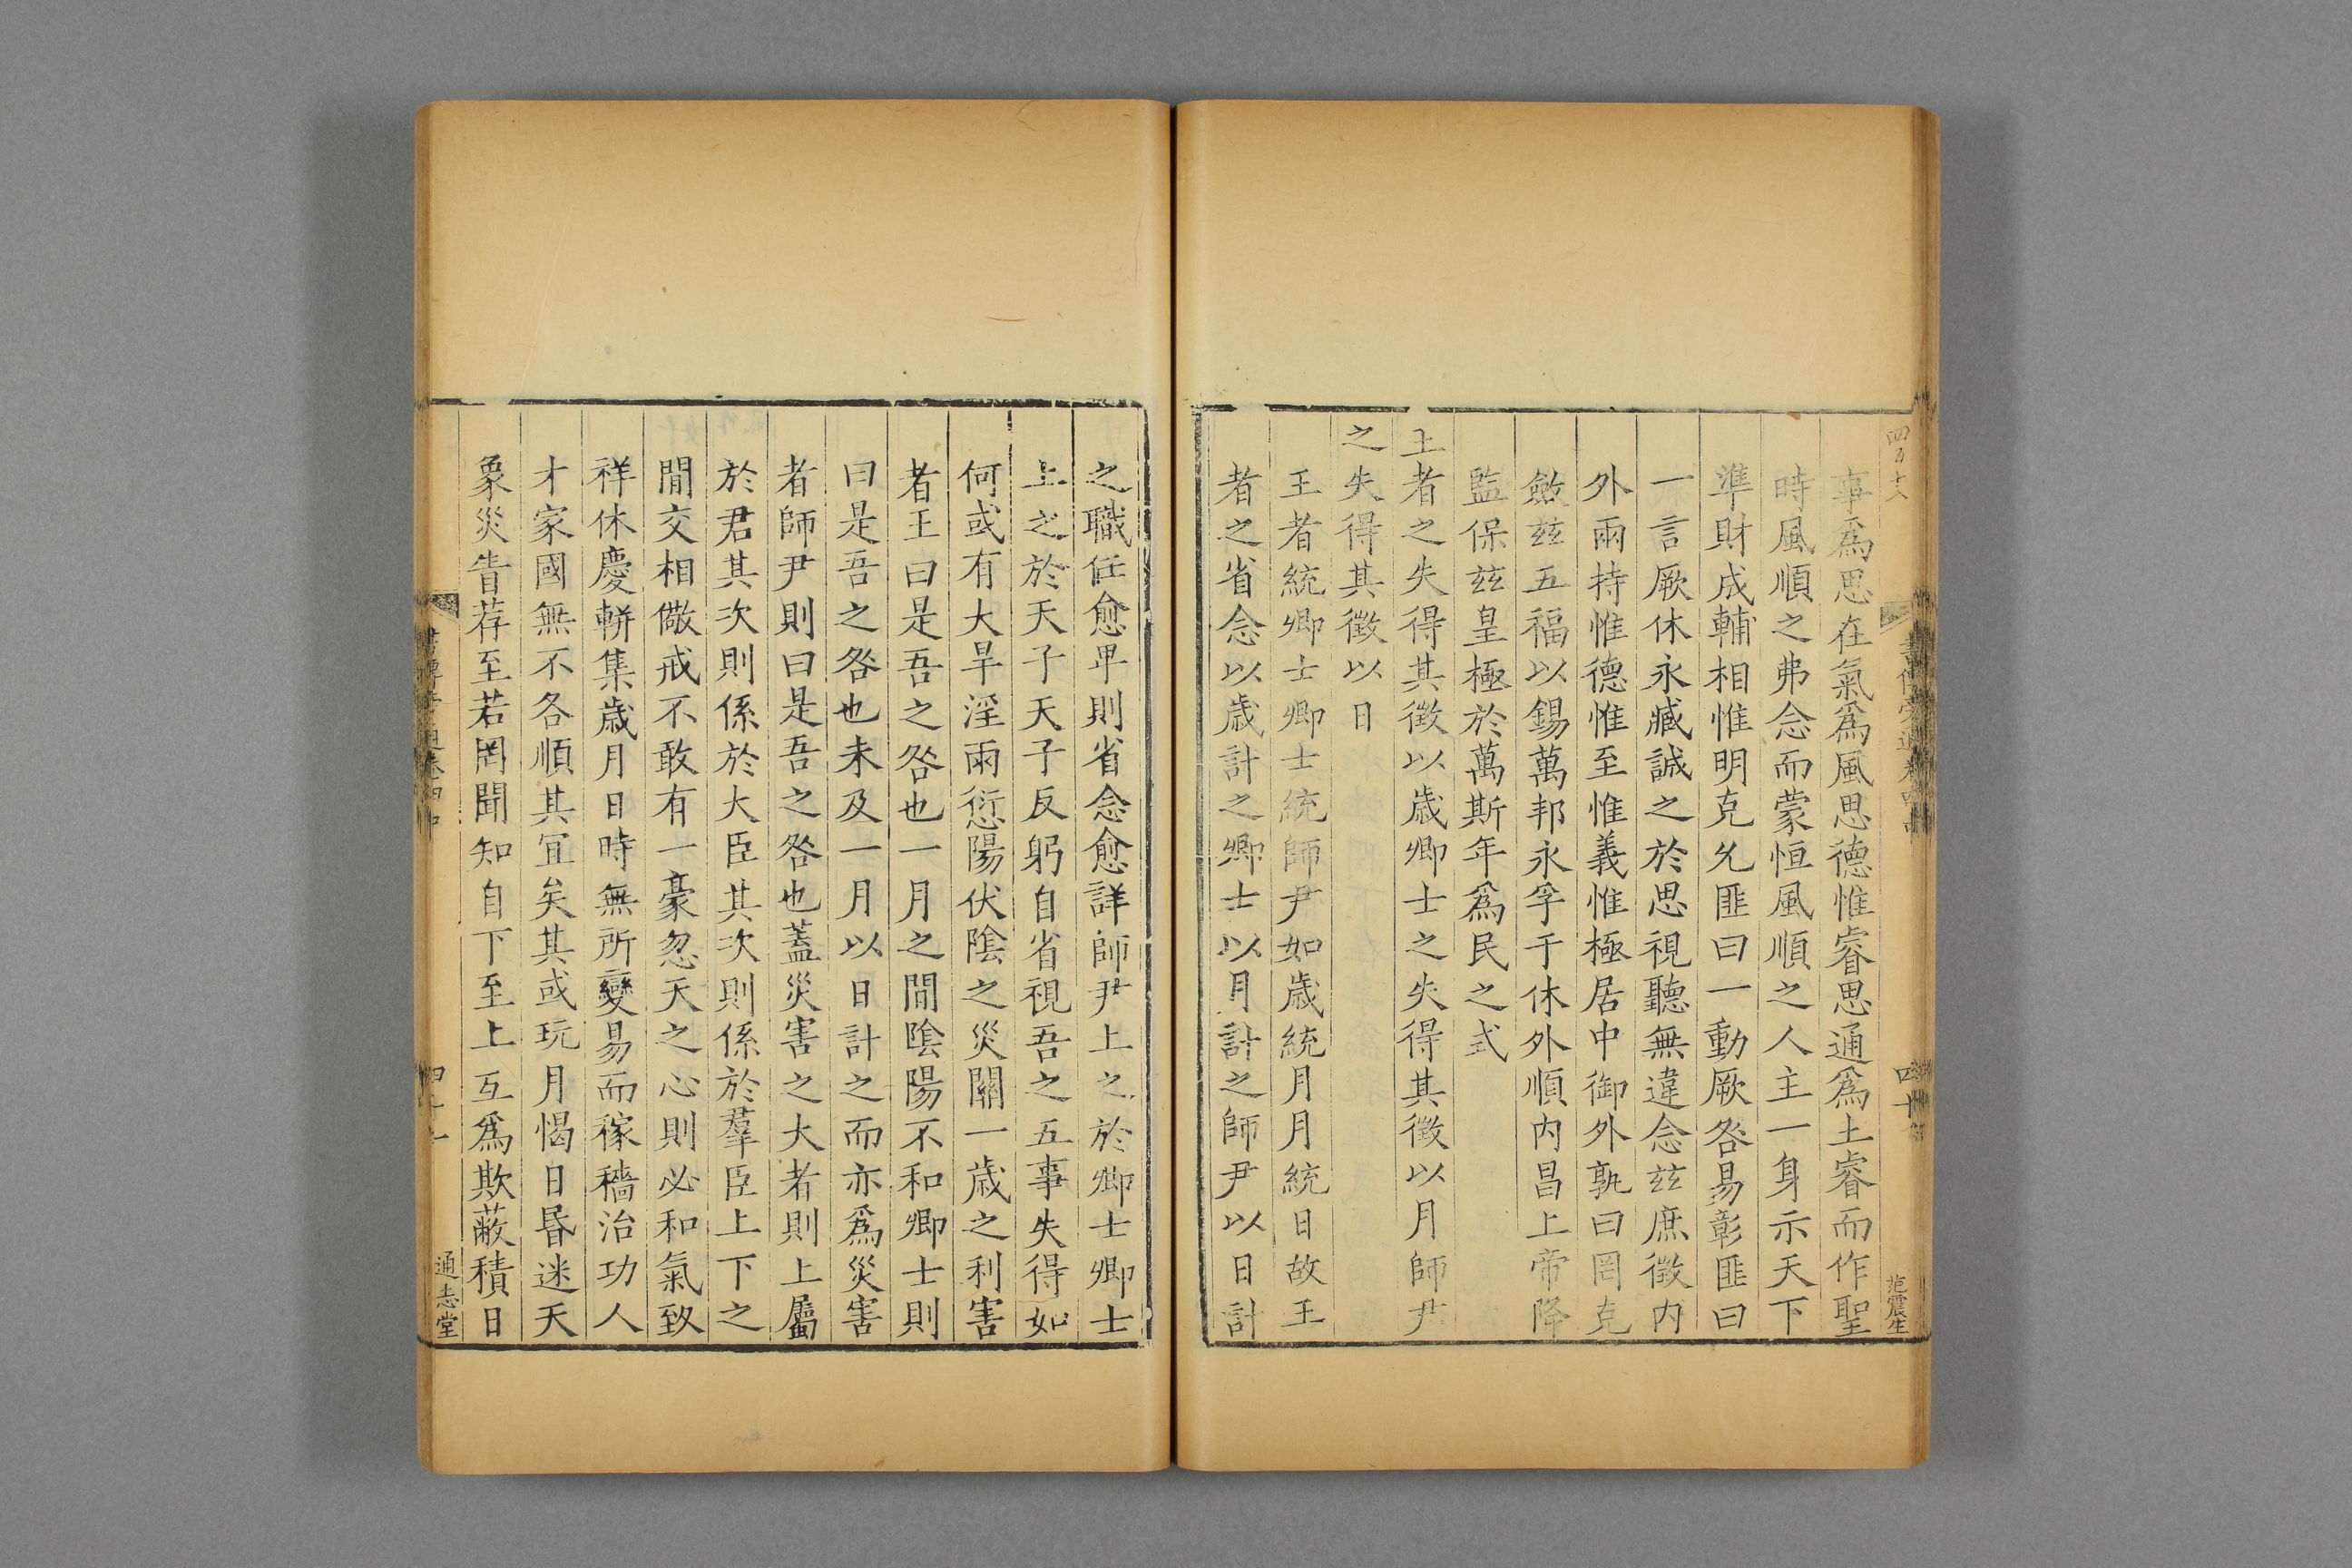 四百十八
事爲思在氣爲風思德惟睿思通爲土睿而作聖
時風順之弗念而蒙恒風順之人主一身示天下
準財成輔相惟明克允匪曰一動厥咎易彰匪曰
一言厥休永臧誠之於思視聽無違念玆庶徵内
外雨持惟德惟至惟義惟極居中御外孰曰罔克
斂玆五福以錫萬邦永孚于休外順内昌上帝降
監保玆皇極於萬斯年爲民之式
王者之失得其徵以歲卿士之失得其徵以月師尹
之失得其徵以日
王者統卿士卿士統師尹如歲統月月統日故王
者之省念以歲計之卿士以月計之師尹以日計
范震生
之職任愈卑則省念愈詳師尹上之於卿士卿士
上之於天子天子反躬自省視吾之五事失得如
何或有大旱淫雨愆陽伏陰之災關一歲之利害
者王曰是吾之咎也一月之間陰陽不和卿士則
曰是吾之咎也未及一月以日計之而亦爲災害
者師尹則曰是吾之咎也蓋災害之大者則上屬
於君其次則係於大臣其次則係於羣臣上下之
間交相儆戒不敢有一豪忽天之心則必和氣致
祥休慶騈集歲月日時無所變易而稼穡治功人
才家國無不各順其宜矣其或玩月愒日昬迷天
象災眚荐至若罔聞知自下至上互爲欺蔽積日
通志堂